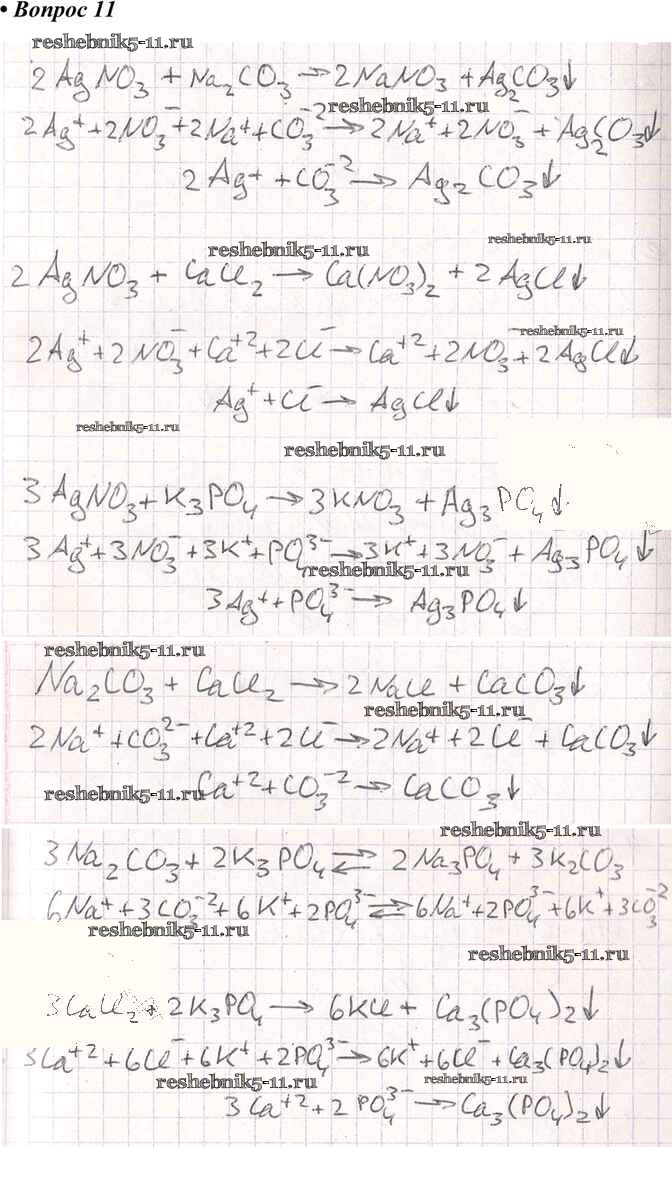 • Вопрос 11
reshebnik5-11.ru
2AgNO₃ + Na₂CO₃ → 2NaNO₃ + Ag₂CO₃↓
reshebnik5-11.ru
2Ag⁺ + 2NO₃⁻ + 2Na⁺ + CO₃⁻² → 2Na⁺ + 2NO₃⁻ + Ag₂CO₃↓
2Ag⁺ + CO₃⁻² → Ag₂CO₃↓
reshebnik5-11.ru
reshebnik5-11.ru
2AgNO₃ + CaCl₂ → Ca(NO₃)₂ + 2AgCl↓
reshebnik5-11.ru
2Ag⁺ + 2NO₃⁻ + Ca⁺² + 2Cl⁻ → Ca⁺² + 2NO₃⁻ + 2AgCl↓
Ag⁺ + Cl⁻ → AgCl↓
reshebnik5-11.ru
reshebnik5-11.ru
3AgNO₃ + K₃PO₄ → 3KNO₃ + Ag₃PO₄↓
3Ag⁺ + 3NO₃⁻ + 3K⁺ + PO₄³⁻ → 3K⁺ + 3NO₃⁻ + Ag₃PO₄↓
reshebnik5-11.ru
3Ag⁺ + PO₄³⁻ → Ag₃PO₄↓
reshebnik5-11.ru
Na₂CO₃ + CaCl₂ → 2NaCl + CaCO₃↓
reshebnik5-11.ru
2Na⁺ + CO₃²⁻ + Ca⁺² + 2Cl⁻ → 2Na⁺ + 2Cl⁻ + CaCO₃↓
reshebnik5-11.ru
Ca⁺² + CO₃⁻² → CaCO₃↓
reshebnik5-11.ru
3Na₂CO₃ + 2K₃PO₄ ⇌ 2Na₃PO₄ + 3K₂CO₃
6Na⁺ + 3CO₃⁻² + 6K⁺ + 2PO₄³⁻ ⇌ 6Na⁺ + 2PO₄³⁻ + 6K⁺ + 3CO₃⁻²
reshebnik5-11.ru
reshebnik5-11.ru
3CaCl₂ + 2K₃PO₄ → 6KCl + Ca₃(PO₄)₂↓
3Ca⁺² + 6Cl⁻ + 6K⁺ + 2PO₄³⁻ → 6K⁺ + 6Cl⁻ + Ca₃(PO₄)₂↓
reshebnik5-11.ru
reshebnik5-11.ru
3Ca⁺² + 2PO₄³⁻ → Ca₃(PO₄)₂↓